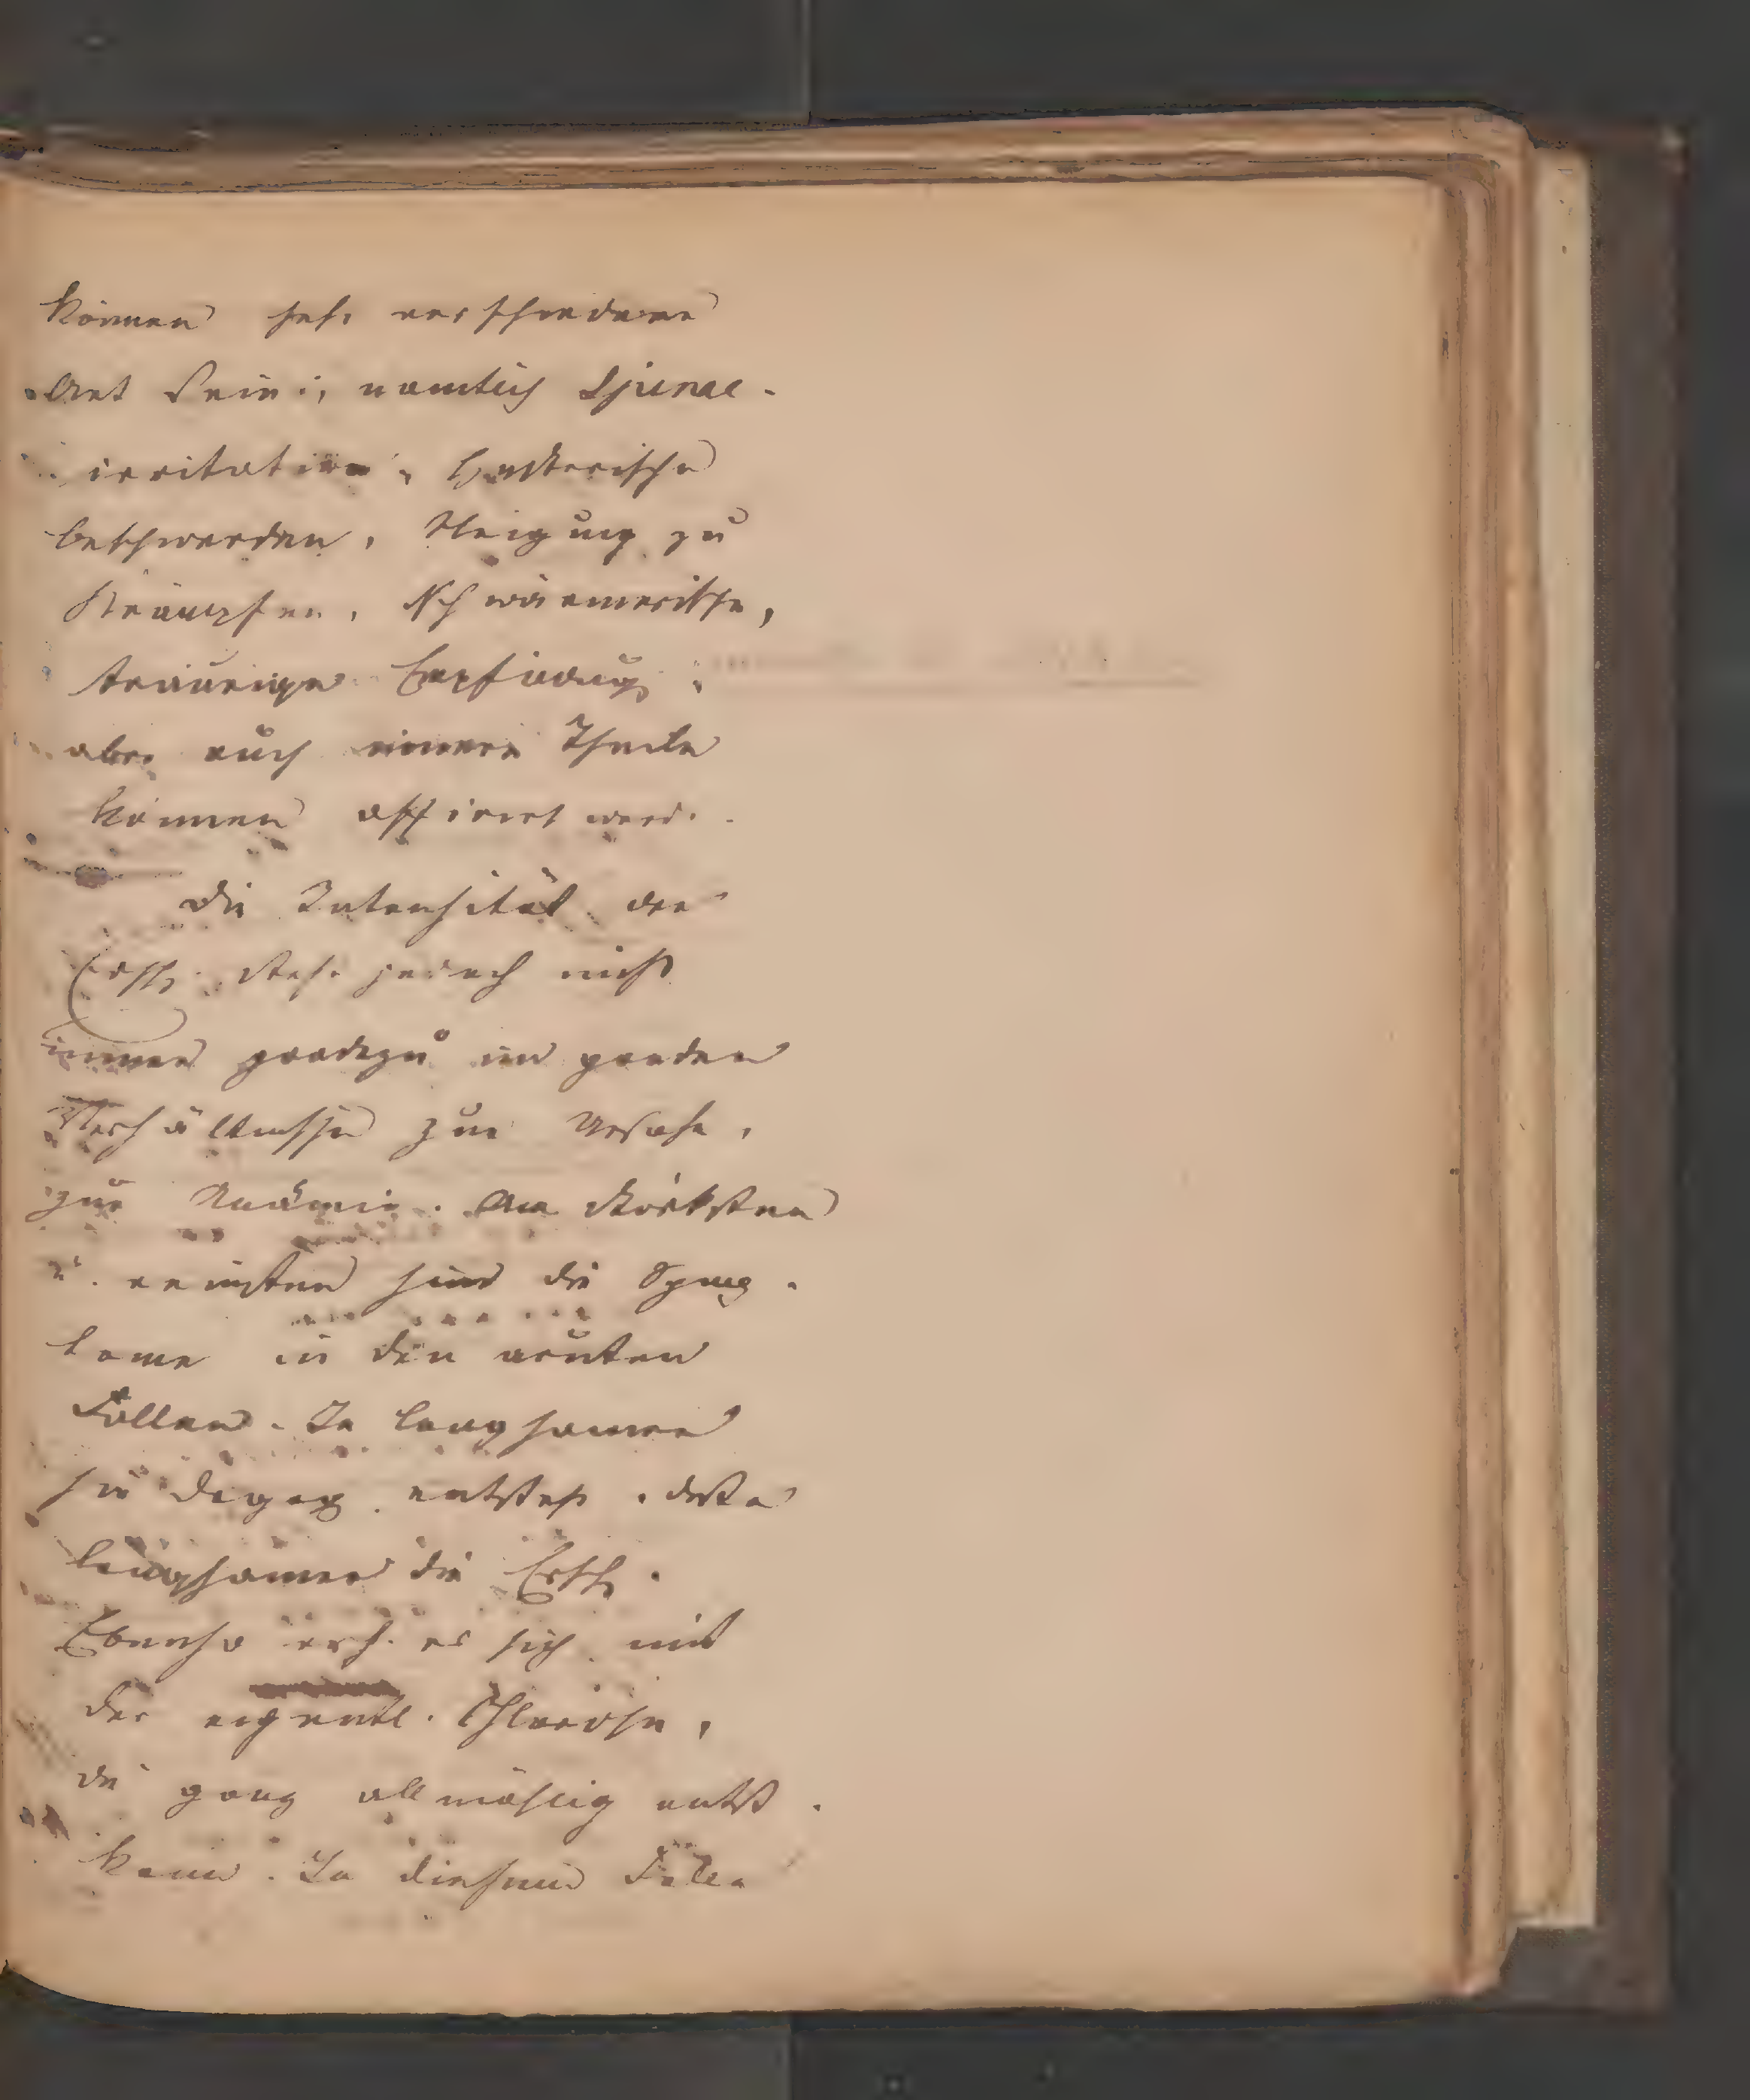 können sehr verschiedener
Art sein:, namlich Spinal-
irritation, Hysterische
beschwerden, Neigung zu
Krämpfen, Schwärmerische,
traurige Empfindung.
aber auch innere Theile
können afficirt werd.
Die Intensität der
Ersch. steh. jedoch nicht
immer gradezu im graden
Verhältnisse zur Ursache,
zur Anämie. Am stärksten
u. reinsten sind die Symp-
tome in den acuten
Fällen. Je langsamer
sie dageg. entsteh., desto
langsamer die Ersch.
Ebenso verh. es sich mit
der eigentl. Chlorose,
die ganz allmählig entst.
kann. In diesem Falle